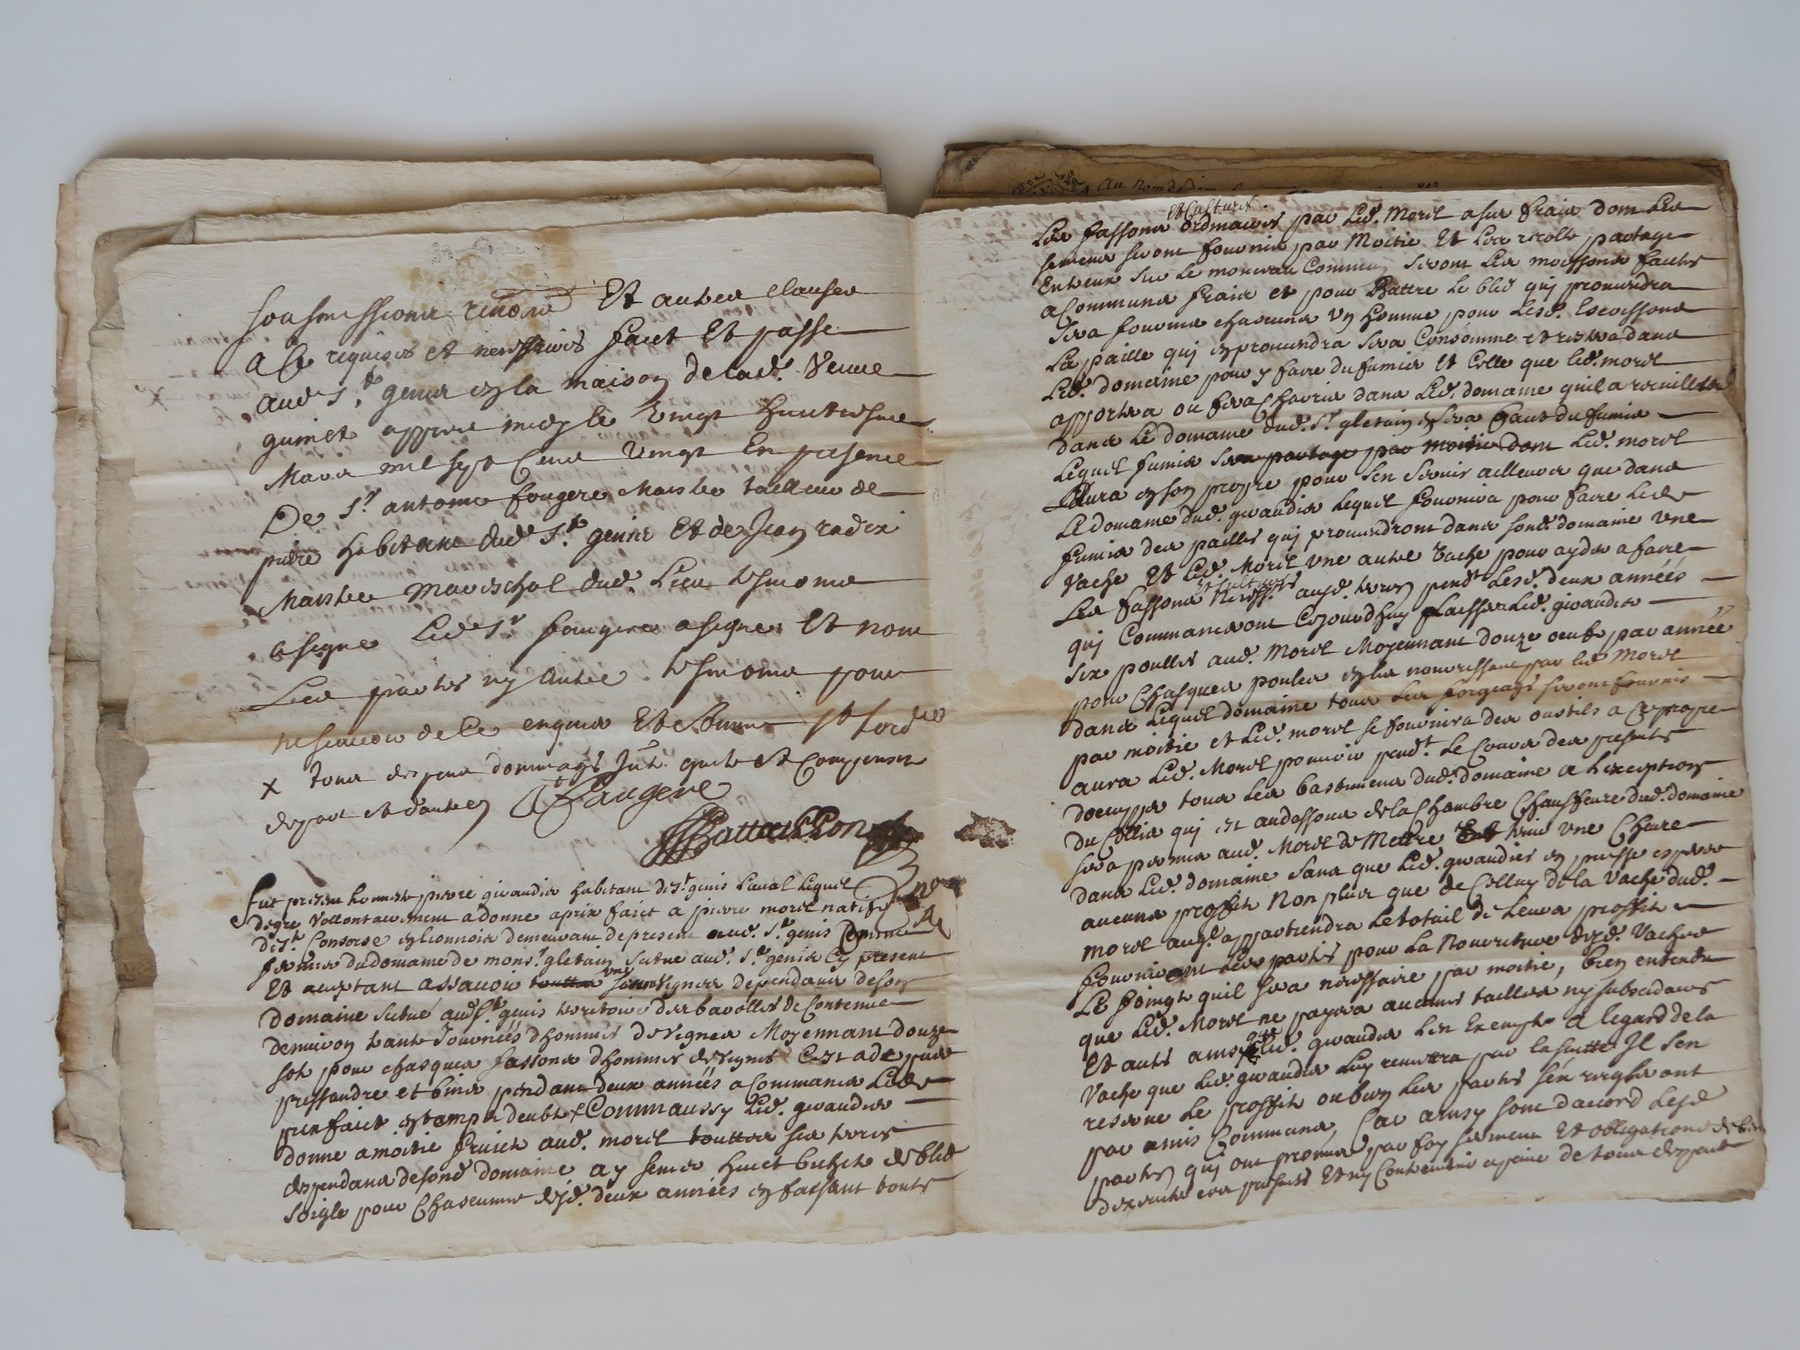 soubmissions renons Et autres clauses
a ce requises et necessaires faict Et passe
aud. St. genis en la maison de lad. Veuve
guinet appres midy le vingt huitiesme
Mars mil sept Cens vingt En presence
De Sr. antoine fougere Maistre tailleur de
pierre habitant dud. St. genis Et de Jean radix
Maistre mareschal dud. Lieu tesmoins
Led. Sr. fougere a signe Et non
Les parties ny autre tesmoins pour
ne scavoir de ce enquis Et
x tous despens dommages
depart et d'autre A Faugere
Battaillon
fut present honneste pierre giraudier habitant de St. genis Laval Lequel
de gre vollontairement a donne a prix faict a pierre morel natif
de St. Consorse en lionnois demeurant de present aud. St. genis Comme
fermier du domaine de monsr. gletain scitue aud. St. genis Cy present
Et acceptant assavoir vignes dependans de son
domaine scitue aud. St. genis territoire des barolles de Contenue
denviron trante Journées d'hommes de Vignes Moyennant douze
sols pour chasques fassons d'hommes de vignes
et biner pendant deux années a Commancer
Comm'aussy Led. girandier
donne a moitie fruicts aud. morel touttes ses terres
despendans de sond. domaine a y semer huict bichets de bled
soigle pour Chascunne desd. deux années en faisant touts
Au nom de dieu
et Cultures
Les fassons ordinaires par Led. Morel a ses frais dont Les
semens seront fournis par Moitie Et Les recolte partage
Entreux sur Le monceau Commun seront Les moissons faictes
a Communs frais et pour Battre Le bled quy proviendra
sera fournis chascuns un homme pour Lesd. Escossons
La paille quy en proviendra sera Consomme et restera dans
Led. domaine pour y faire du fumier Et Celle que Led. morel
apportera ou fera Charrier dans Led. domaine quil a recuillie
dans Le domaine dud. Sr. gletain sera faict du fumier
Lequel fumier sera partage par moitie dont Led. morel
aura en son propre pour s'en servir ailleurs que dans
Le domaine dud. girandier Lequel fournira pour faire Led.
fumier des pailles quy proviendront dans sond. domaine Une
Vache Et Led. Morel Une autre Vache pour ayder a faire
et Cultures
Les fassons aud. terres pendt. Lesd. deux années
quy Commanceront Cejourdhuy Laissera Led. girandier
six poulles aud. Morel Moyennant douze oeufs par année
pour Chasques poules en les nourrissant par led. Morel
dans Lequel domaine tous Les seront fournis
par moitie et Led. morel se fournira des oustils a Ce propre
aura Led. Morel pouvoir pendt. Le Cours des presentes
d'occupper tous Les bastimens dud. domaine a L'exception
du Cellier quy est au dessous de la Chambre Chauffeure dud. domaine
sera permis aud. Morel de Mettre tenir une Chevre
dans Led. domaine sans que Led. girandier en puisse espere
aucuns proffits Non plus que de Celluy de la Vache dud.
morel aux. appartiendra Le totail de Leurs proffits
fourniront Les parties pour La Nourriture desd. Vaches
Le foingt quil sera necessaire par moitie, bien entendu
que Led. Morel ne payera aucunes tailles ny subsidances
Et auts ains Led. girandier L'en Exempte A legard de la
Vache que Led. girandier Luy remettra par la suitte Il s'en
reserve Le proffit ou bien Les parties s'en regleront
par amis Communs, Car ainsy sont d'accord Lesd.
parties quy ont promis par foy serment Et obligations de biens
d'executer ces presentes Et ny Contrevenir a peine de tous despens